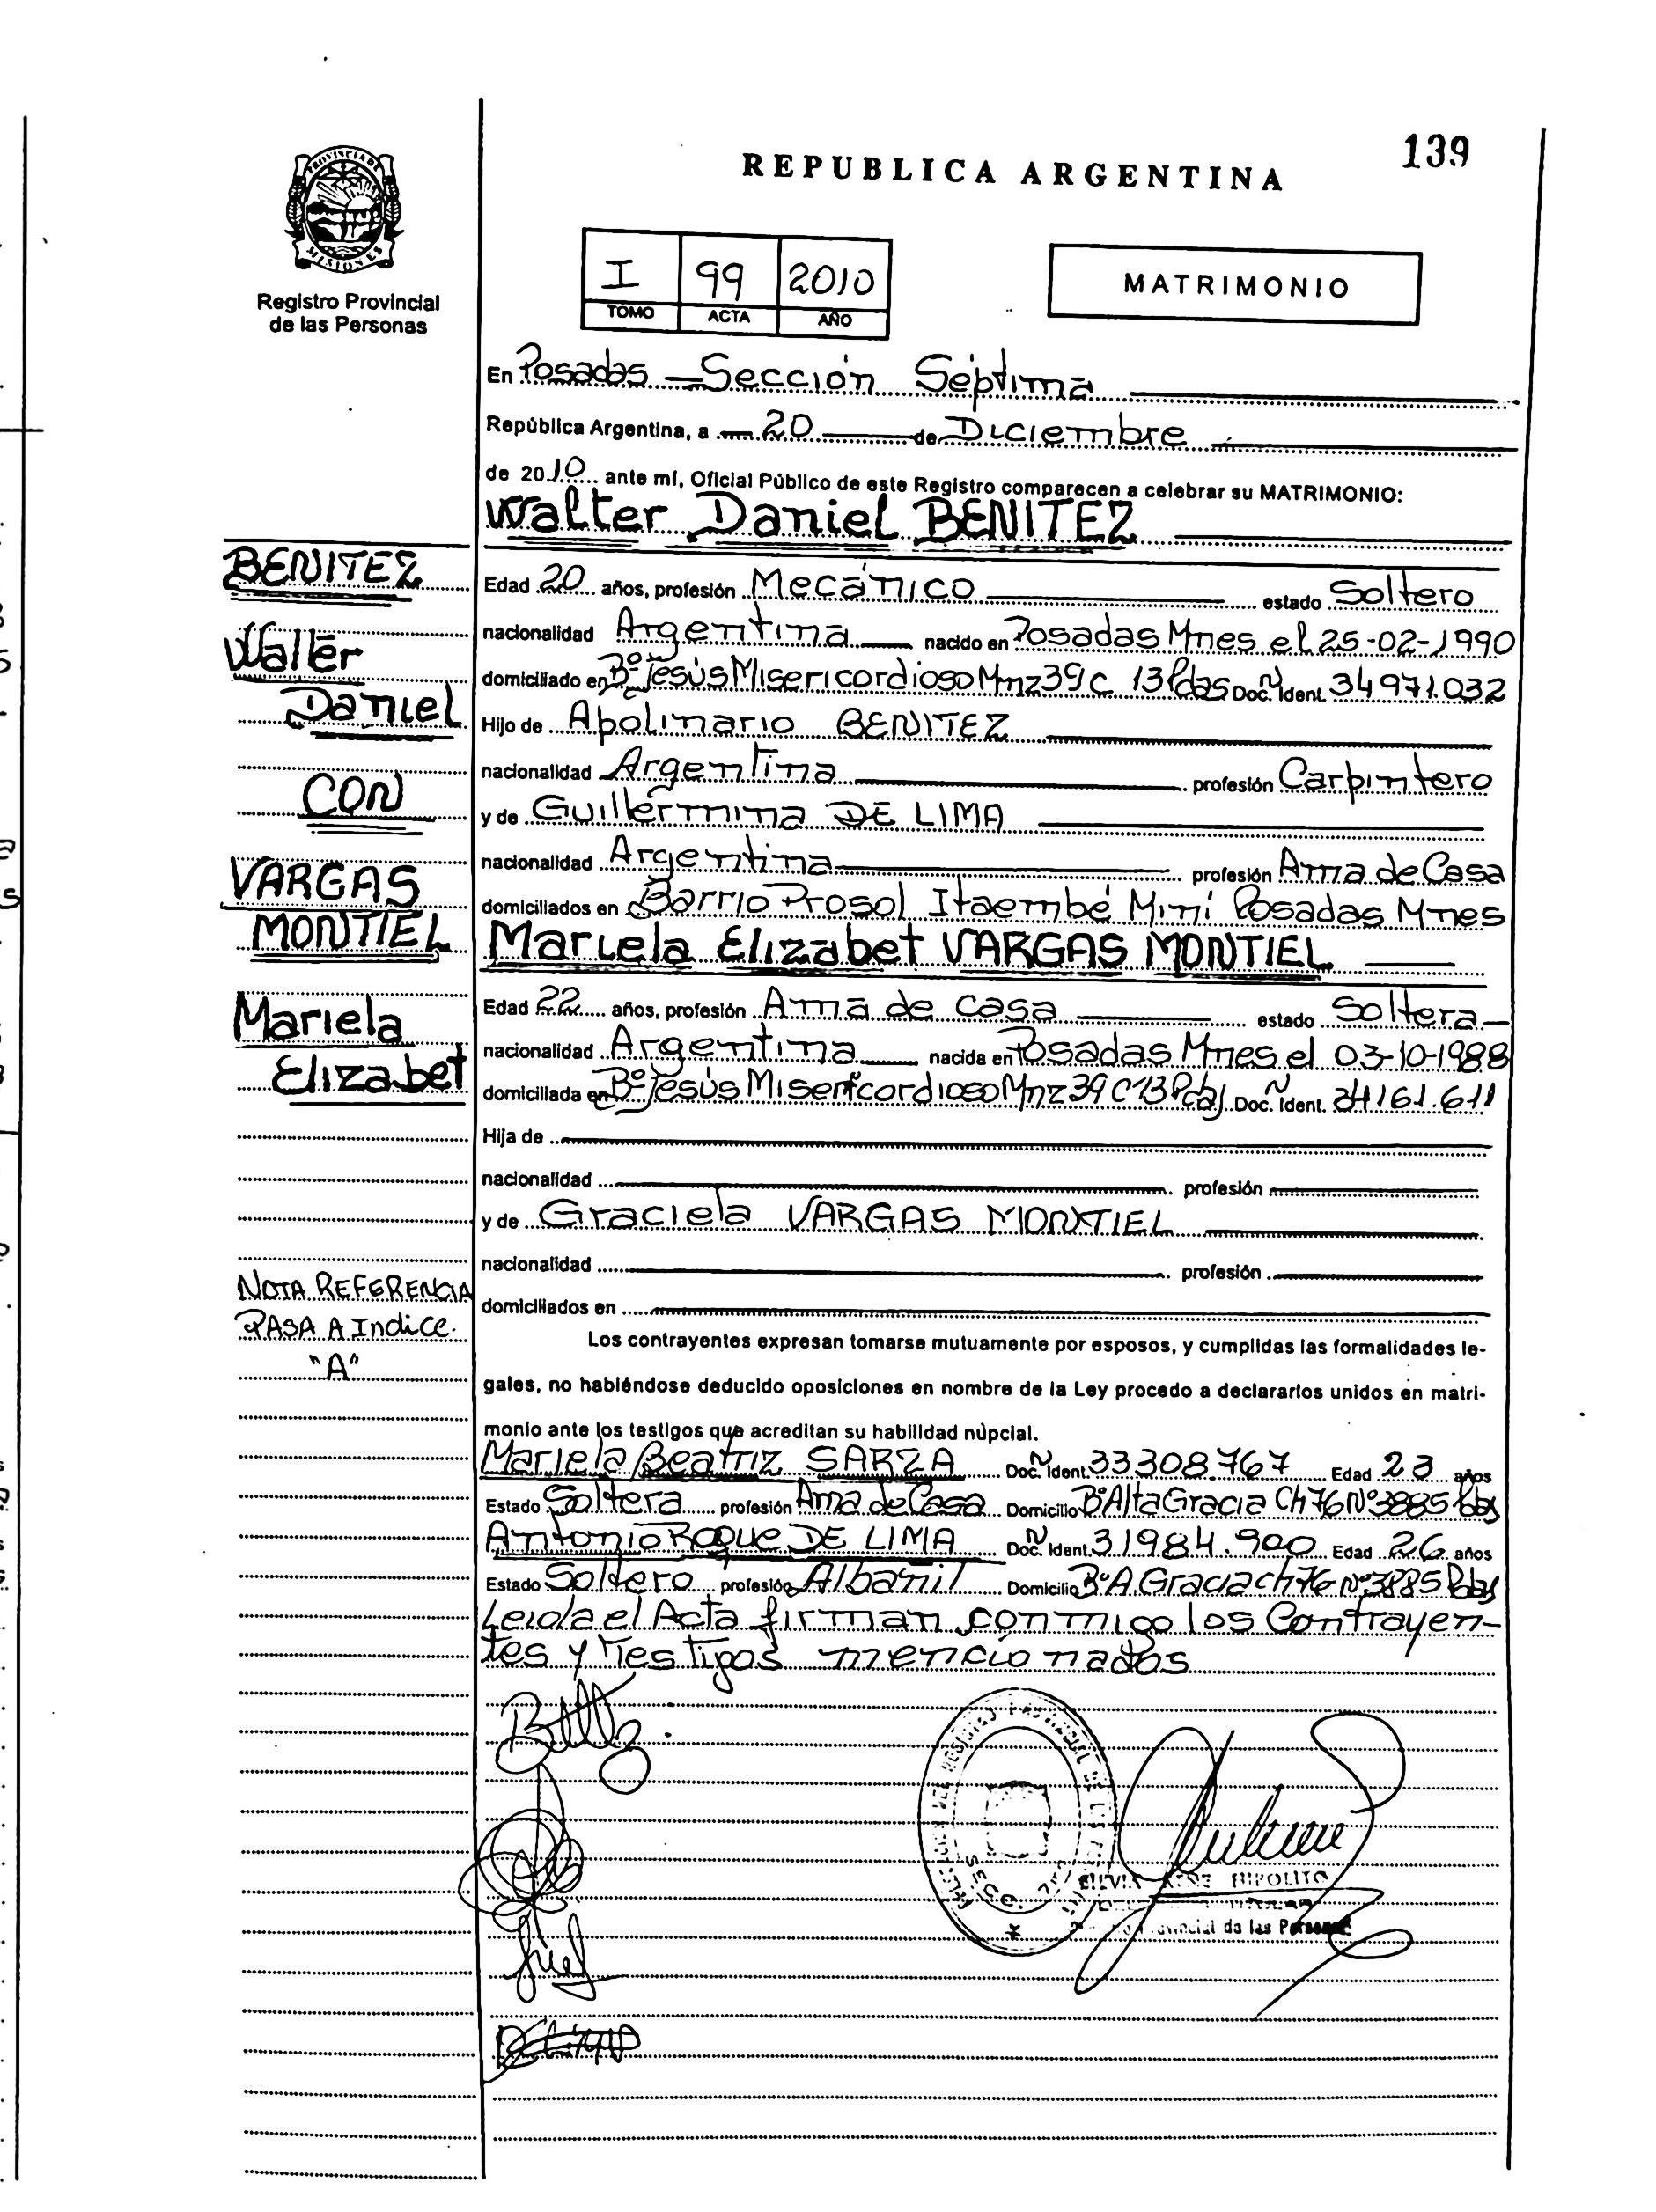 139
REPUBLICA ARGENTINA
PROVINCIA DE MISIONES
Registro Provincial
de las Personas
I 99 2010
TOMO ACTA AÑO
MATRIMONIO
En Posadas — Sección Séptima
República Argentina, a 20 de Diciembre
de 2010 ante mí, Oficial Público de este Registro comparecen a celebrar su MATRIMONIO:
Walter Daniel BENITEZ
BENITEZ
Walter
Daniel
CON
VARGAS
MONTIEL
Mariela
Elizabet
Edad 20 años, profesión Mecánico estado Soltero
nacionalidad Argentina nacido en Posadas Mnes el 25-02-1990
domiciliado en Bº Jesús Misericordioso Mnz 39 C 13 Pdas Doc. N Ident. 34971.032
Hijo de Apolinario BENITEZ
nacionalidad Argentina profesión Carpintero
y de Guillermina DE LIMA
nacionalidad Argentina profesión Ama de Casa
domiciliados en Barrio Prosol Itaembé Miní Posadas Mnes
Mariela Elizabet VARGAS MONTIEL
Edad 22 años, profesión Ama de casa estado Soltera
nacionalidad Argentina nacida en Posadas Mnes el 03-10-1988
domiciliada en Bº Jesús Misericordioso Mnz 39 C 13 Pdas Doc. N Ident. 34161.611
Hija de
nacionalidad profesión
y de Graciela VARGAS MONTIEL
nacionalidad profesión
domiciliados en
NOTA REFERENCIA
PASA A Indice
"A"
Los contrayentes expresan tomarse mutuamente por esposos, y cumplidas las formalidades le-
gales, no habiéndose deducido oposiciones en nombre de la Ley procedo a declararlos unidos en matri-
monio ante los testigos que acreditan su habilidad núpcial.
Mariela Beatriz SARZA Doc. N Ident. 33308.767 Edad 23 años
Estado Soltera profesión Ama de Casa Domicilio Bº Alta Gracia Ch 76 Nº 3885 Pdas
Antonio Roque DE LIMA Doc. N Ident. 31984.900 Edad 26 años
Estado Soltero profesión Albañil Domicilio Bº A. Gracia ch 76 Nº 3885 Pdas
Leida el Acta firman conmigo los Contrayen-
tes y Testigos mencionados
HIPOLITO
Provincial de las Personas